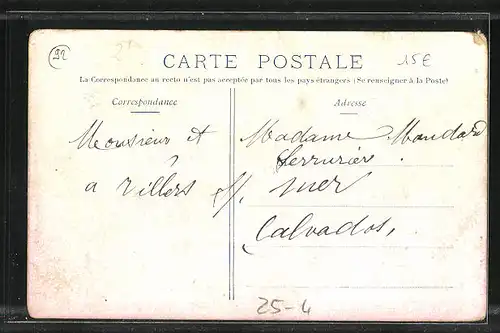 92
CARTE POSTALE
15€
La Correspondance au recto n'est pas acceptée par tous les pays étrangers (Se renseigner à la Poste)
Correspondance
Adresse
Monsieur et Madame Mandard
Serrurier
à Villers s/ mer
Calvados,
25-4